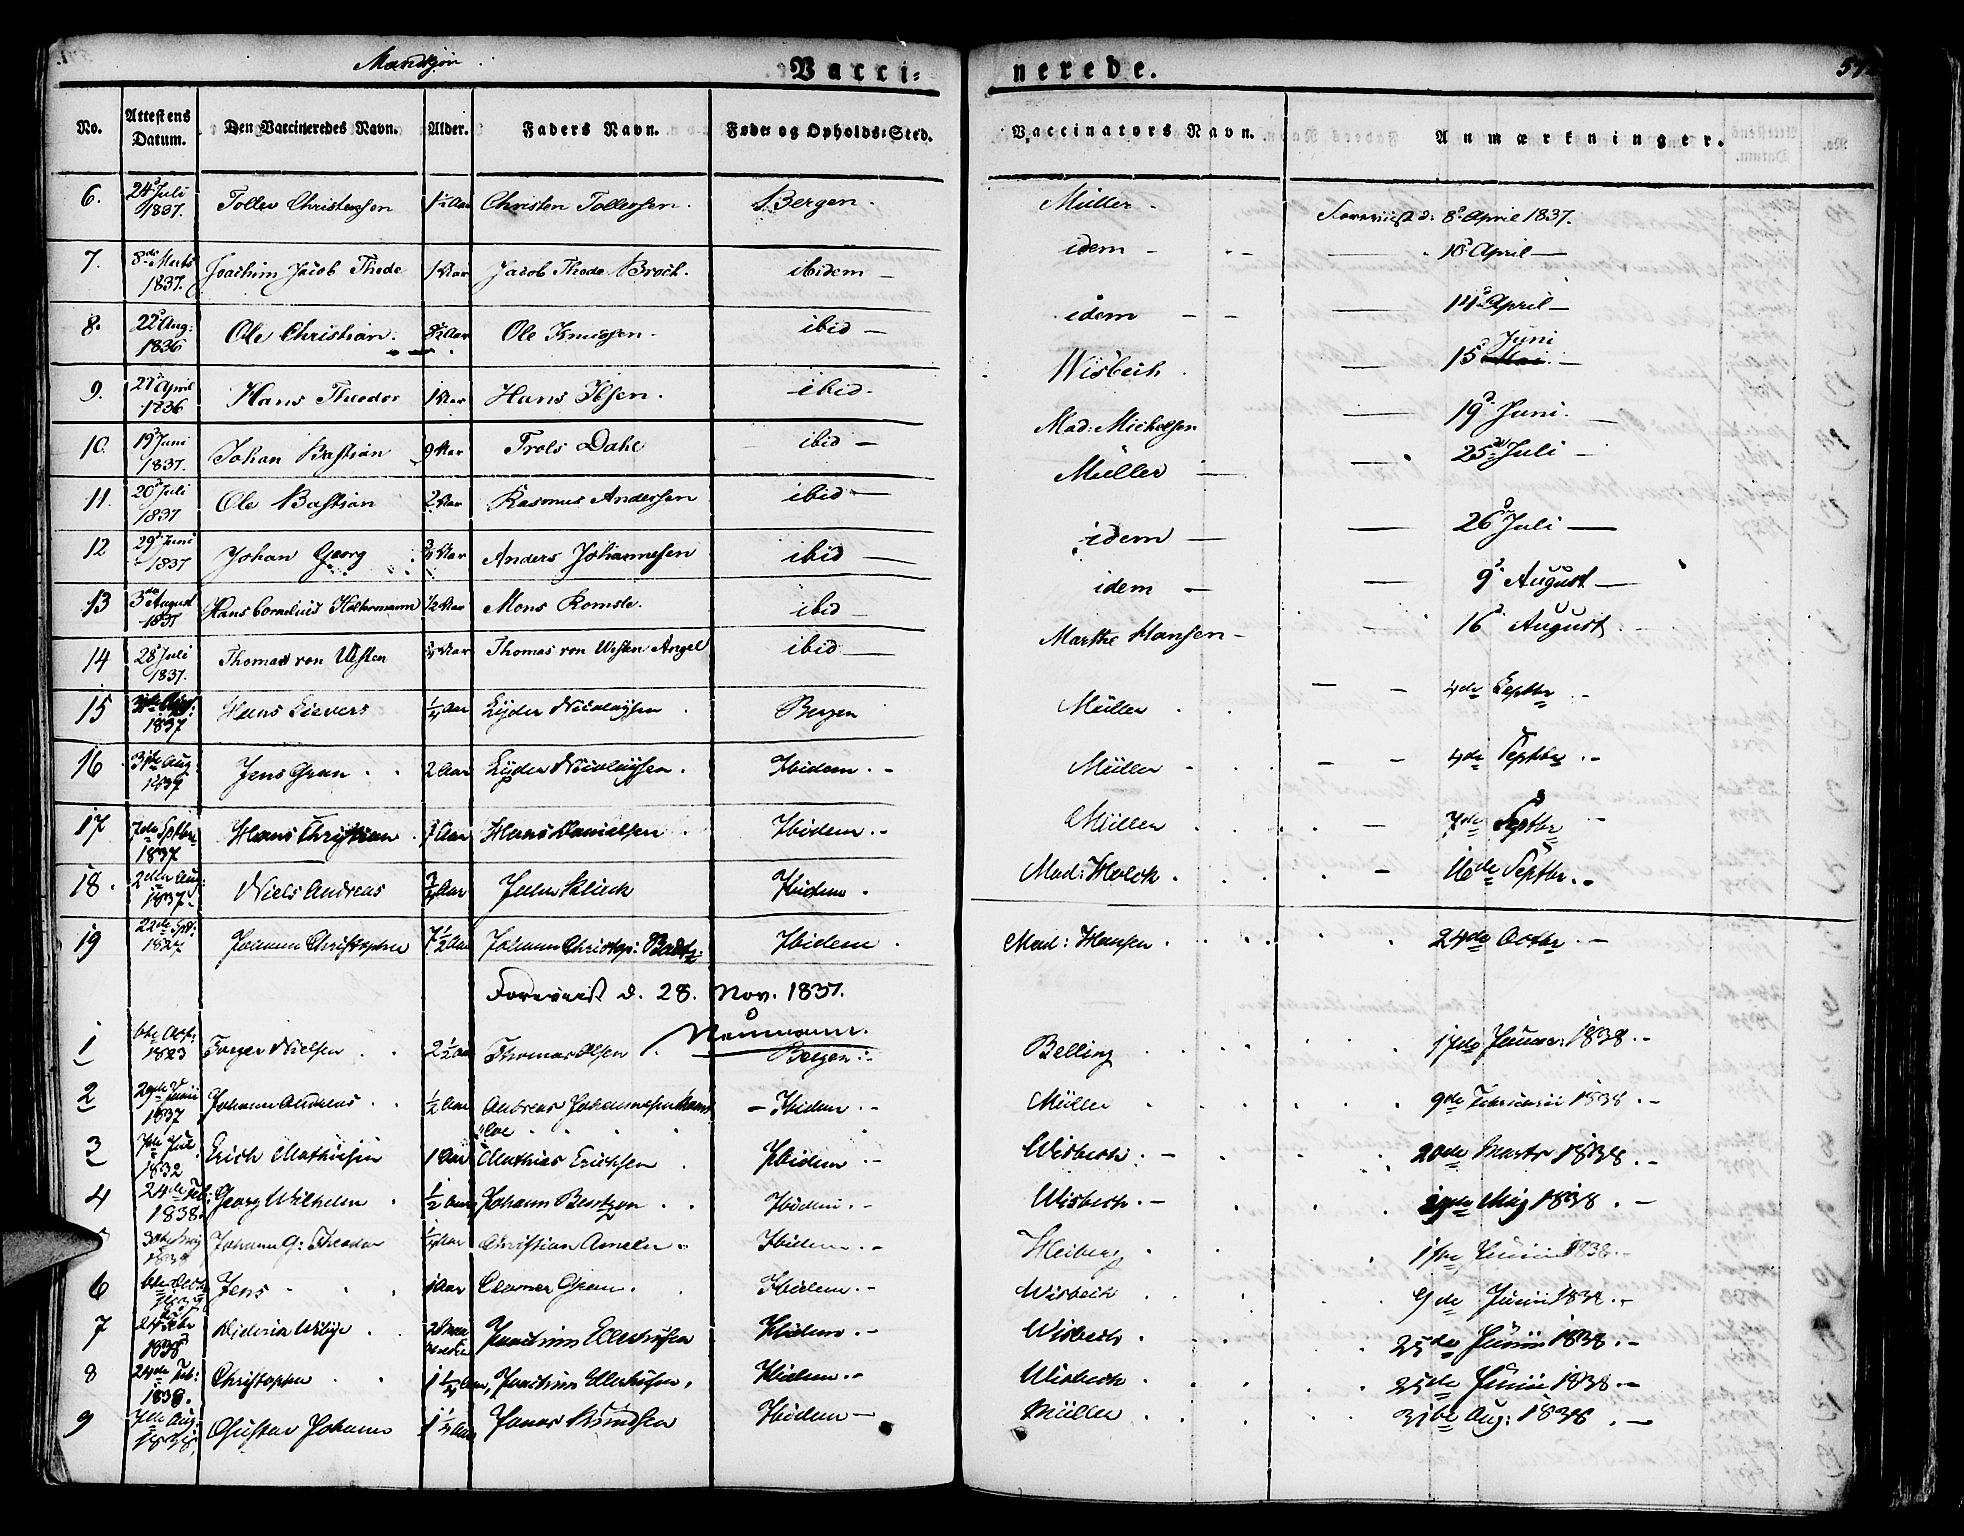 Mandkjøn.
Vacci-nerede.
No. Attestens Datum. Den Vaccineredes Navn. Alder. Faders Navn. Føde- og Opholds-Sted. Vaccinators Navn. Anmærkninger.
6. 24 Juli 1837. Tollev Christensen 1½ Aar Christen Tollefsen. Bergen. Müller. Foreviist d. 8 April 1837.
7. 8de Marts 1837. Joachim Jacob Thode 1 Aar Jacob Thode Broch. ibidem — idem — 18 April —
8. 22 Aug: 1836 Ole Christian. Aar Ole Knudsen. ibid — idem — 14 April —
9. April 1836 Hans Theodor 1 Aar Hans Ibsen. ibid. Wisbech. 15 Juni —
10. 19 Juni 1837. Johan Bastian 9 Aar Trols Dahl ibid — Mad: Michelsen 19 Juni. —
11. 20 Juli 1837 Ole Bastian 2 Aar Rasmus Andersen ibid — Müller — 25 Juli —
12 29 Juni 1837 Johan Georg ¾ Aar Anders Johannesen ibid — idem — 26 Juli —
13 3de August 1837 Hans Cornelius Holtermann ½ Aar Mons Romsle. ibid — idem — 9 August —
14 28 Juli 1837. Thomas von Westen ¾ Aar Thomas von Westen Angel ibid — Marthe Hansen — 16 August.
15 1837 Hans Sievers ¼ Aar Lyder Nicolaysen Bergen Müller 4de Septbr
16 31te Aug: 1837 Jens Gran 2 Aar Lyder Nicolaysen. Ibidem. — Müller 4de Septbr. —
17 7de Septbr 1837 Hans Christian Aar Hans Danielsen Ibidem. — Müller 7de Septbr
18. 1837. Niels Andreas ¾ Aar Ibidem. Mad: Holck 16de Septbr. —
19 22de Spt: 1827 Johann Christopher 7½ Aar Johann Christop: Ibidem. Mad: Hansen 24de Octbr. —
Foreviist d. 28. Nov. 1837.
Neumann.
1 6te Oct: 1823 Torger Nielsen 2½ Aar Thomas Olsen Bergen. Belling 17de Januar: 1838. —
2 29de Junii 1837 Johann Andreas ½ Aar Andreas Johannesen — Ibidem. — Müller 9de Februarii 1838. —
3 7de Jul. 1832 Erich Mathiesen 1 Aar Mathies Erichsen Ibidem. — Wisbech. — 20de Marts 1838. —
4 24de Feb: 1838. Georg Wilhelm ½ Aar Johann Bentzen Ibidem. — Wisbech. — 29de Maj 1838 —
5 Johann G: Theodor ¼ Aar Christian Ameln. Ibidem. — Heiberg 1838. —
6 6te Octbr Jens 1 Aar Claamer Gran. Ibidem. — Wisbech 9de Junii 1838. —
7 24de 1838 Diderich Aar Joachim Ellerhusen Ibidem. — Wisbech. 25de Junii 1838. —
8 24de Feb: 1838. Christopher 1¼ Aar, Joachim Ellerhusen. Ibidem. — Wisbech 25de Junii 1838. —
9 7de Aug: 1838. Gustav Johann 1½ Aar Jonas Knudsen Ibidem — Müller 31te Aug: 1838. —